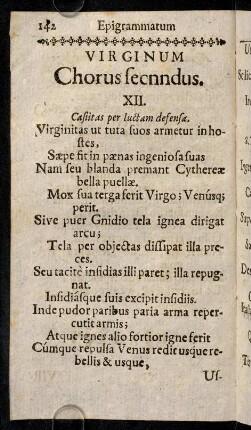 142 Epigrammatum
VIRGINUM
Chorus secnndus.
XII.
Castitas per luctam defensa.
Virginitas ut tuta suos armetur in ho-
stes,
Sæpe fit in pænas ingeniosa suas
Nam seu blanda premant Cythereæ
bella puellæ,
Mox sua terga ferit Virgo; Venúsq;
perit.
Sive puer Gnidio tela ignea dirigat
arcu;
Tela per objectas dissipat illa pre-
ces.
Seu tacitè insidias illi paret; illa repug-
nat.
Insidiásque suis excipit insidiis.
Inde pudor paribus paria arma reper-
cutit armis;
Atque ignes alio fortior igne ferit
Cúmque repulsa Venus redit usque re-
bellis & usque,
Us-